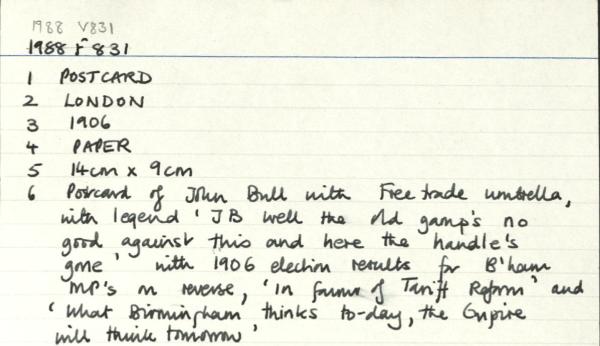 1988 V831
1988 F 831
1 POSTCARD
2 LONDON
3 1906
4 PAPER
5 14cm x 9cm
6 Postcard of John Bull with Free trade umbrella,
with legend 'JB Well the old gamp's no
good against this and here the handle's
gone' with 1906 election results for B'ham
MP's on reverse, 'in favour of Tariff Reform' and
'What Birmingham thinks to-day, the Empire
will think tomorrow'